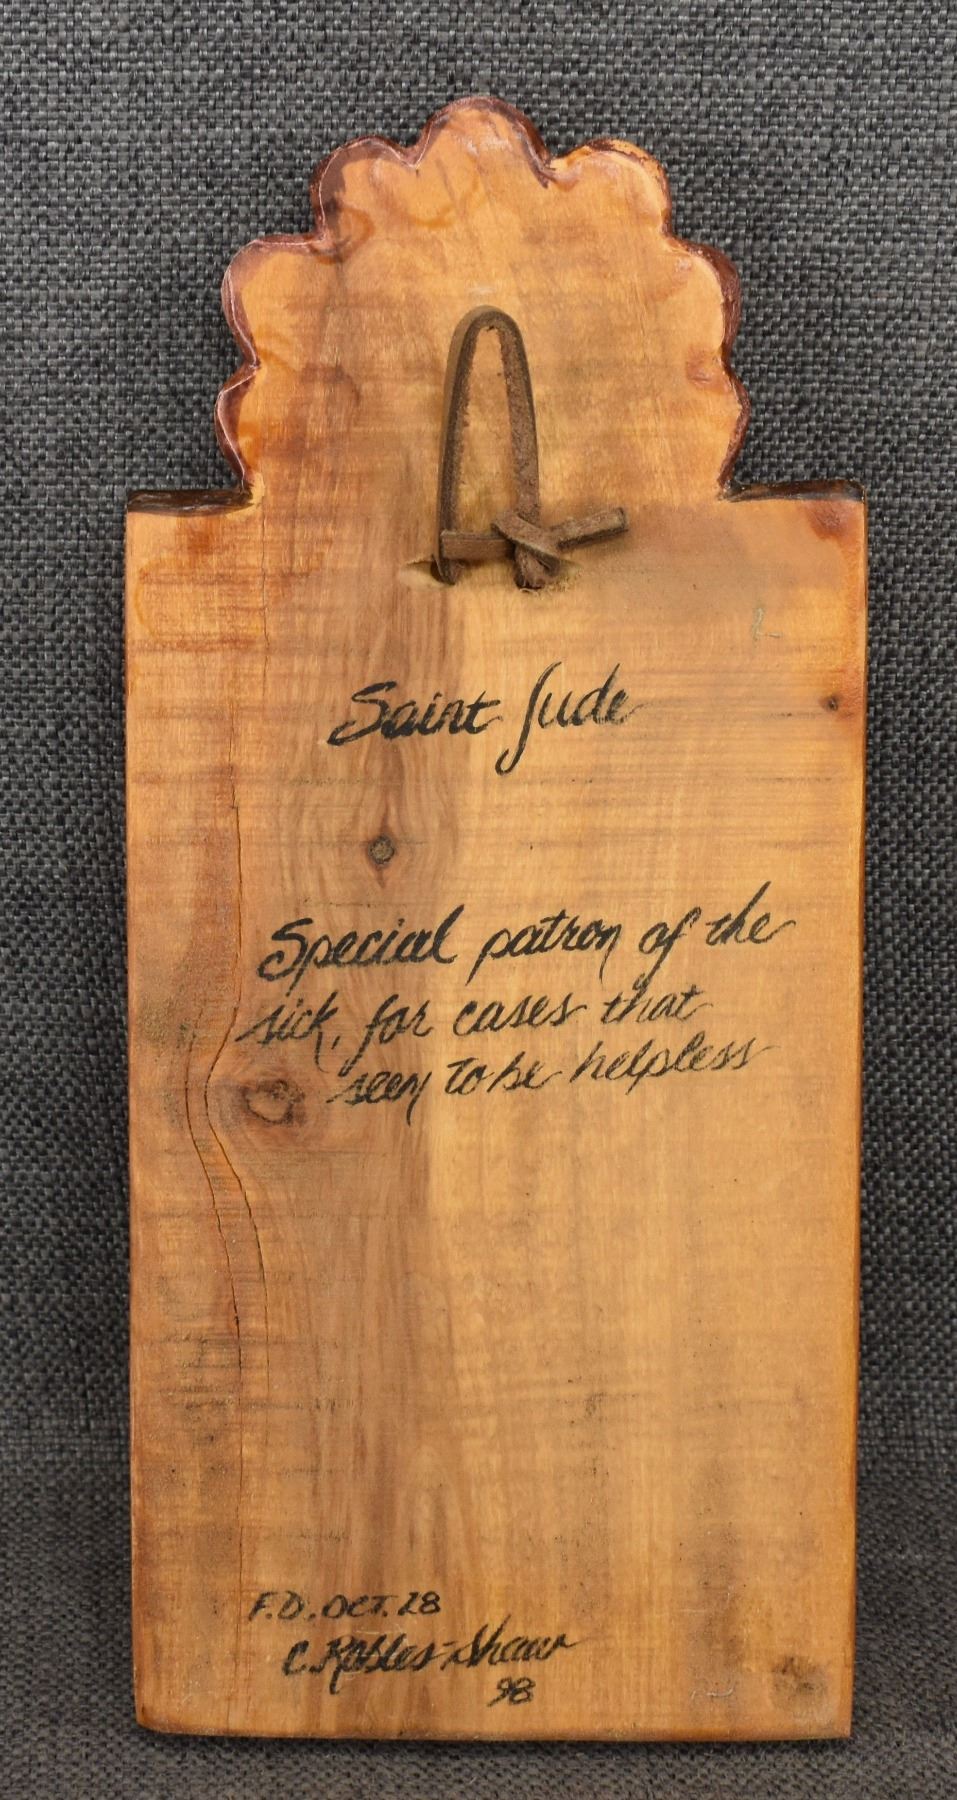 Saint Jude
Special patron of the
sick, for cases that
seem to be helpless
F.D. OCT. 28
C. Robles-Shaw
98